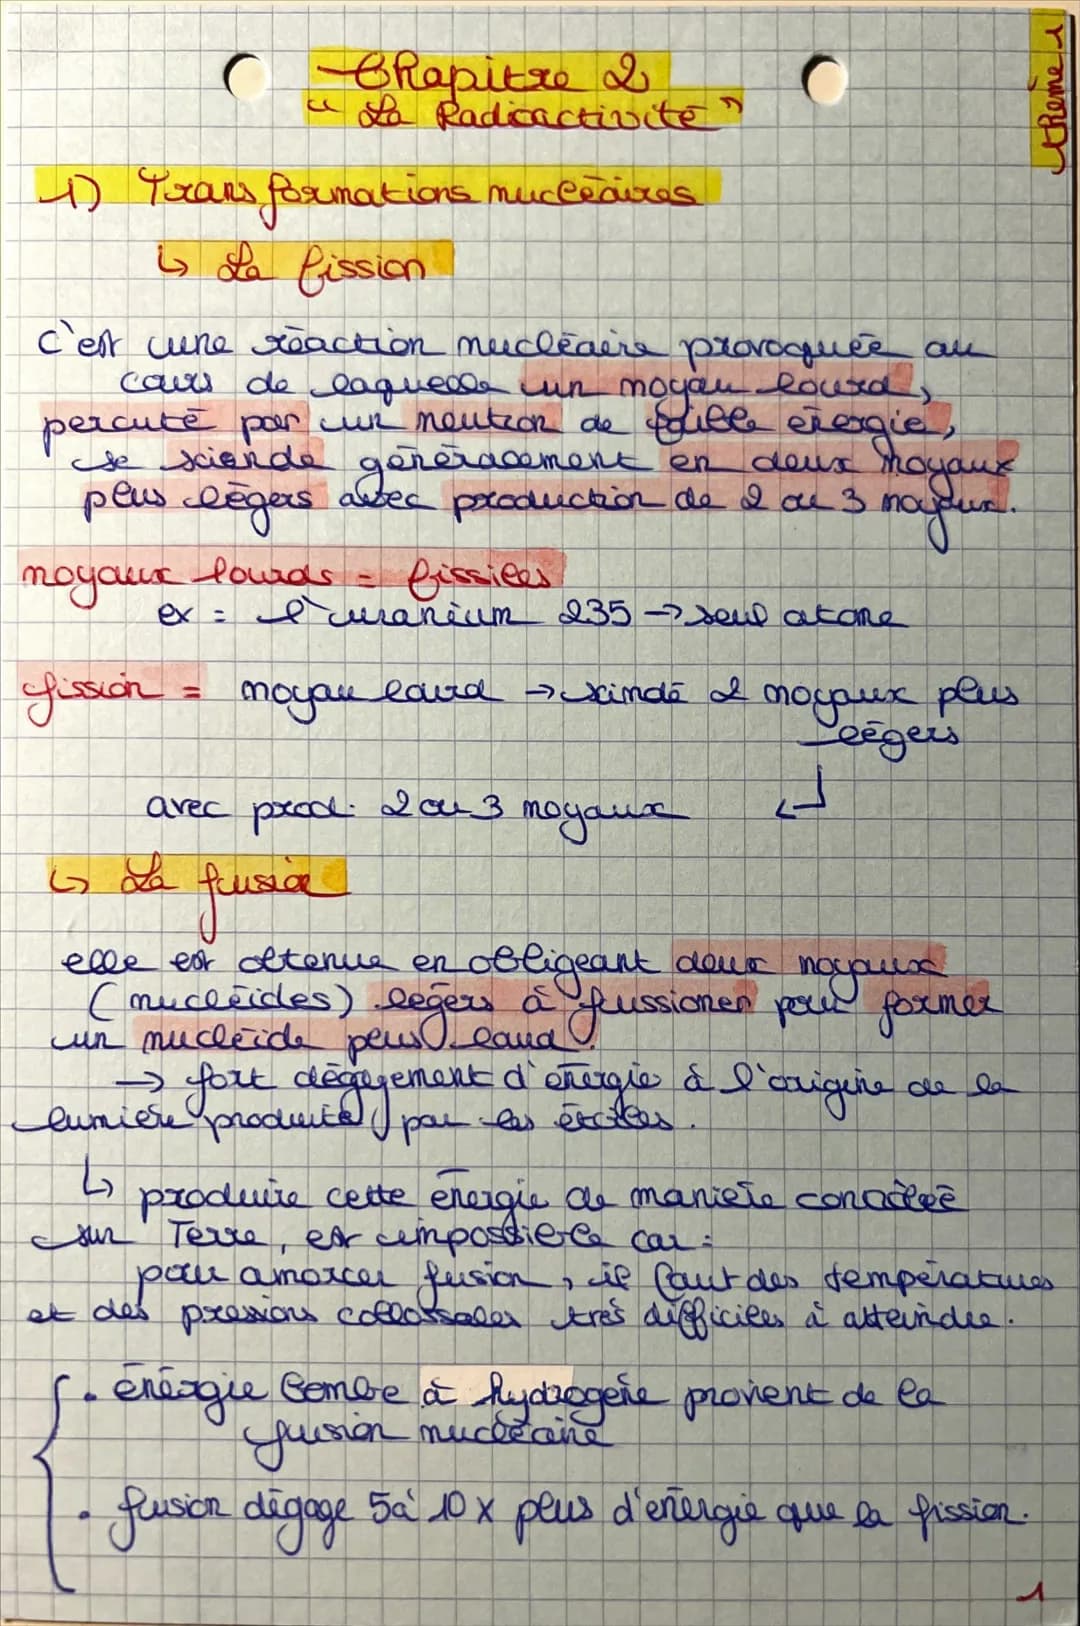 Chapitre 2
Thème 1
"La Radioactivité"
1) Transformations nucléaires
↳ La fission
C'est une réaction nucléaire provoquée au
cours de laquelle un noyau lourd,
percuté par un neutron de faible énergie,
se scionde généralement en deux noyaux
plus légers avec production de 2 ou 3 noyaux.
noyaux lourds = fissiles
ex = l'uranium 235 → seul atome
fission = noyau lourd → scindé 2 noyaux plus
légers
avec prod. 2 ou 3 noyaux ↲
↳ La fusion
elle est obtenue en obligeant deux noyaux
(nucléides) légers à fussioner pour former
un nucléide plus lourd.
→ fort dégagement d'énergie à l'origine de la
lumière produite par les étoiles.
↳ produire cette énergie de manière contrôlée
sur Terre, est impossible car :
pour amorcer fusion, il faut des températures
et des pressions collossales très difficiles à atteindre.
• énérgie bombe à hydrogène provient de la
fusion nucléaire
• fusion dégage 5 à 10 x plus d'énergie que la fission.
1